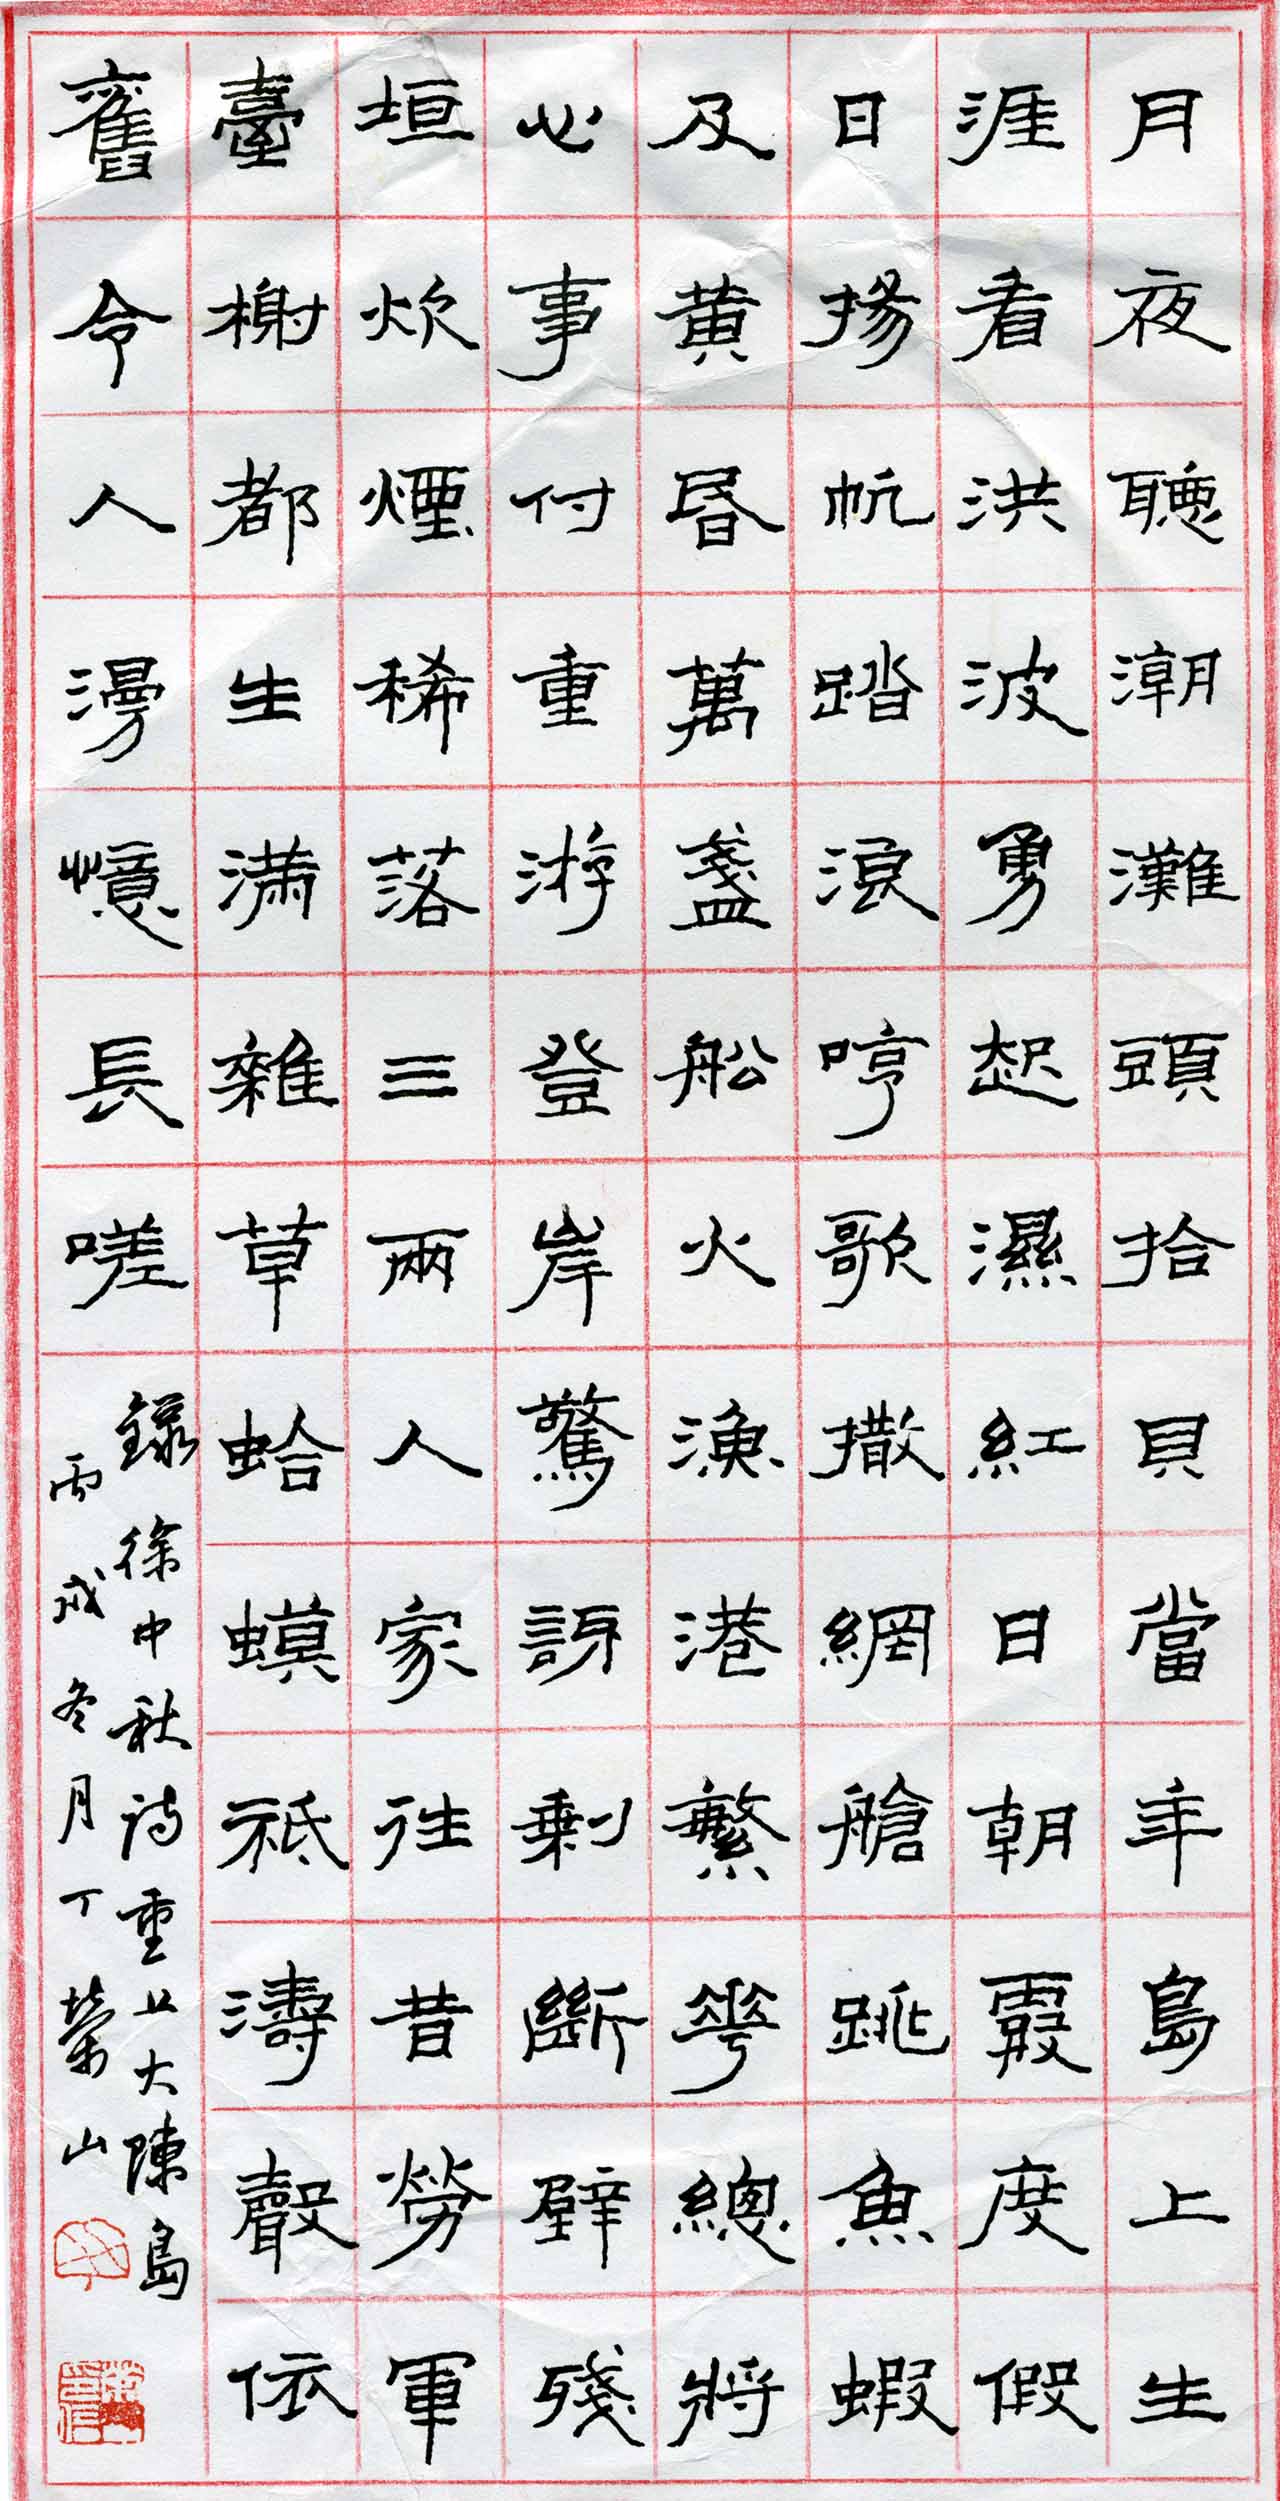 月夜聽潮灘頭拾貝當年島上生
涯看洪波勇起濕紅日朝霞度假
日揚帆踏浪哼歌撒網艙跳魚蝦
及黄昏萬盞船火漁港繁華總將
心事付重游登岸驚訝剩斷壁殘
垣炊煙稀落三兩人家往昔勞軍
臺榭都生滿雜草蛤蟆祗濤聲依
舊令人漫憶長嗟
錄徐中秋詩重上大陳島
丙戌冬月丁榮山